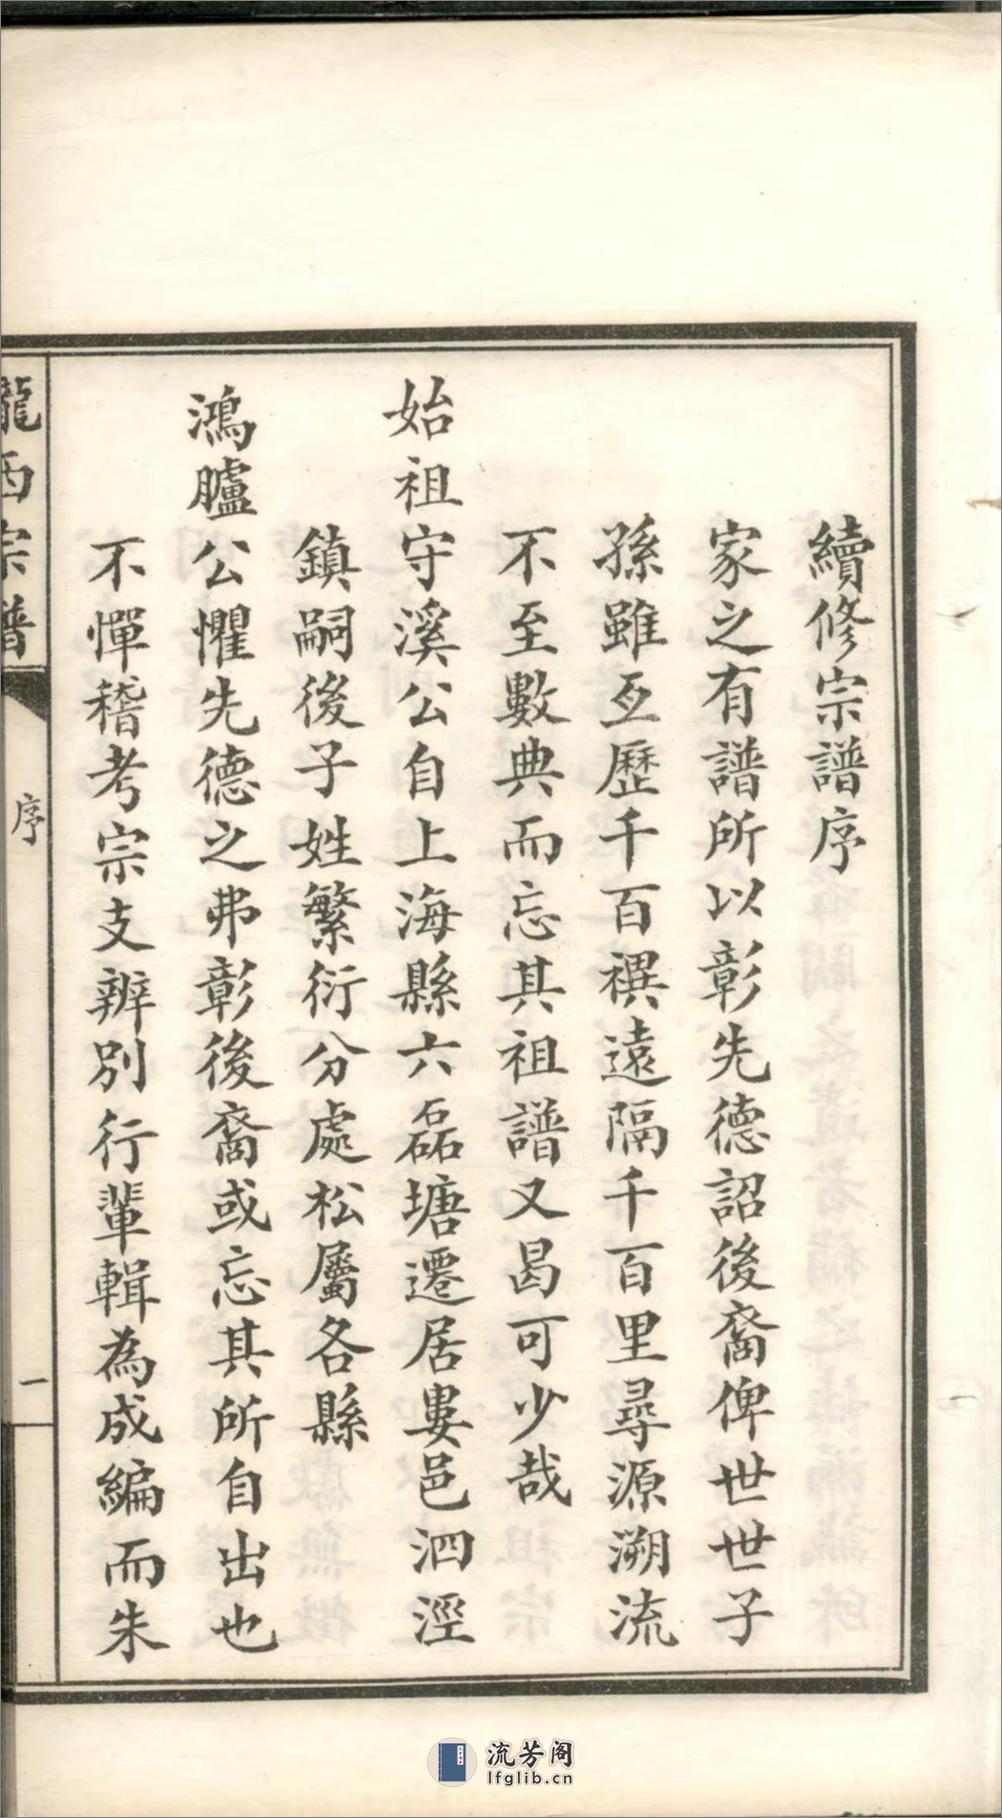 續修宗譜序
家之有譜所以彰先德詔後裔俾世世子
孫雖亙歷千百禩遠隔千百里尋源溯流
不至數典而忘其祖譜又曷可少哉
始祖守溪公自上海縣六磊塘遷居婁邑泗涇
鎮嗣後子姓繁衍分處松屬各縣
鴻臚公懼先德之弗彰後裔或忘其所自出也
不憚稽考宗支辨別行輩輯為成編而朱
隴西宗譜
序
一
流芳阁
lfglib.cn